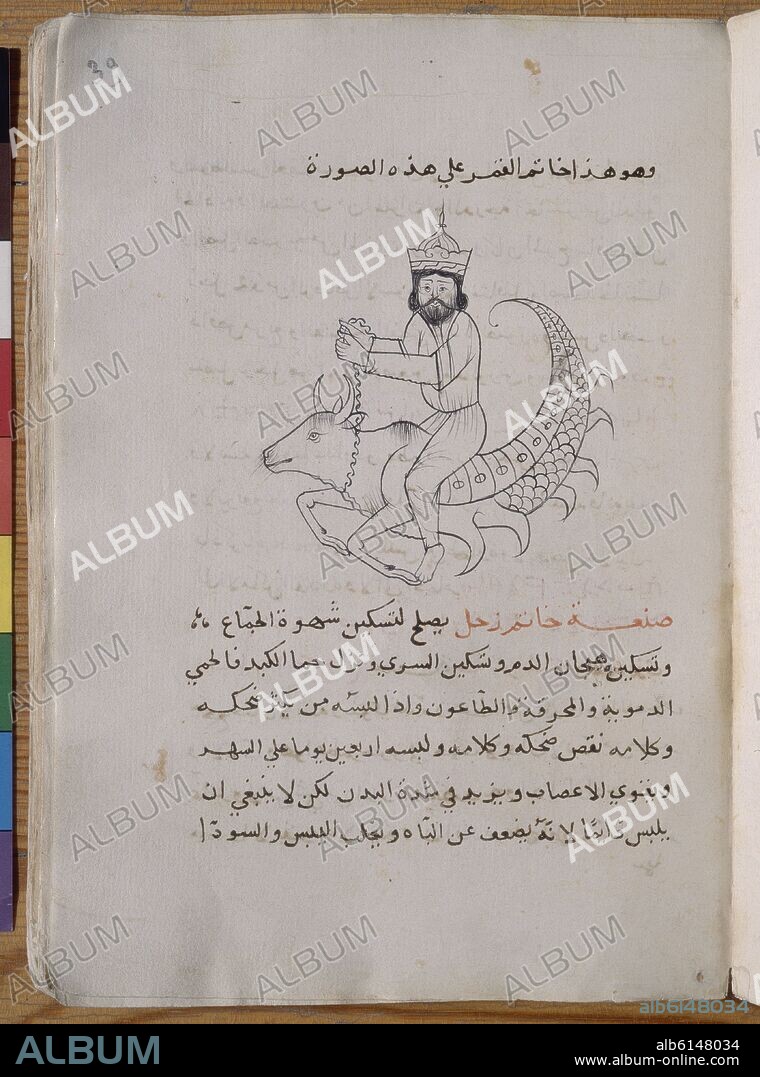 وهو هذا خاتم القمر علي هذه الصورة
صنعة خاتم زحل يصلح لتسكين شهوة الجماع
وتسكين هيجان الدم وتسكين السري ويزيل حما الكبد فالحمي
الدموية والمحرقة والطاعون واذا لبسه من يكثر ضحكه
وكلامه نقص ضحكه وكلامه ولبسه اربعين يوما علي السهر
ويقوي الاعصاب ويزيد في شدة البدن لكن لا ينبغي ان
يلبس دائما لانه يضعف عن الباه ويجلب اليبس والسودا
ALBUM
alb6148034
ALBUM
alb6148034
www.album-online.com